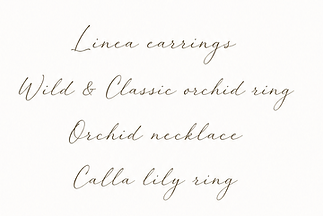 Linea earrings
Wild & Classic orchid ring
Orchid necklace
Calla lily ring